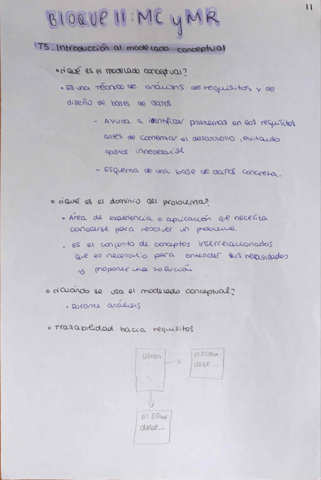 11
BLOQUE II: MC y MR
T5. Introducción al modelado conceptual
• ¿Qué es el modelado conceptual?
• Es una técnica de análisis de requisitos y de
diseño de bases de datos
- Ayuda a identificar problemas en los requisitos
antes de comenzar el desarrollo, evitando
gastos innecesarios
- Esquema de una base de datos concreta.
• ¿Qué es el dominio del problema?
• Área de experiencia o aplicación que necesita
conocerse para resolver un problema.
• Es el conjunto de conceptos interrelacionados
que es necesario para entender sus necesidades
y proponer una solución
• ¿Cuándo se usa el modelado conceptual?
• Durante análisis
• Trazabilidad hacia requisitos
el sistema
debe...
el sistema
debe...